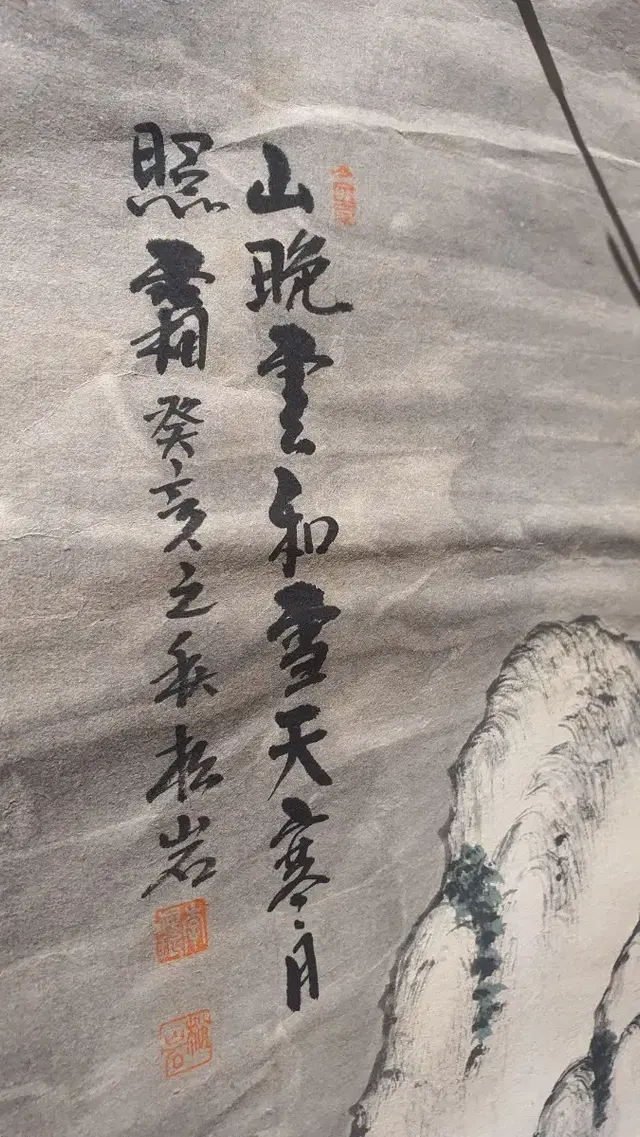 山晚雲和雪天寒月
照霜 癸亥之秋 松岩